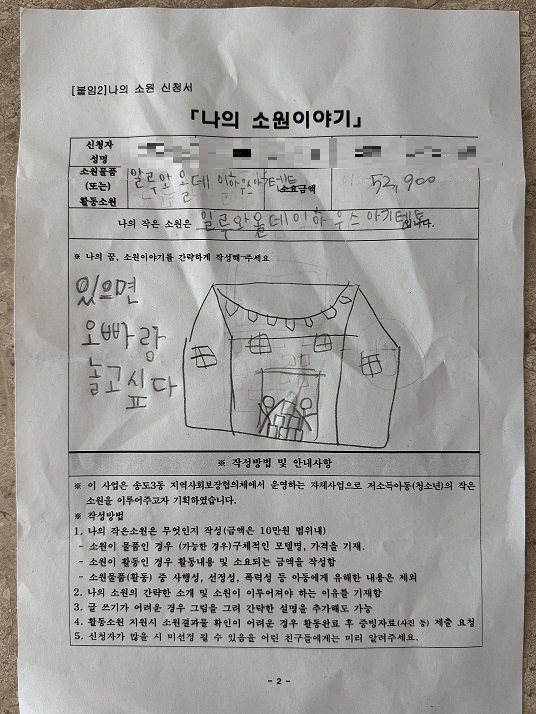 [붙임2]나의 소원 신청서
「나의 소원이야기」
신청자
성명
소원물품
(또는)
활동소원
알루와 올데이하우스아기텐트
소요금액
52,900
나의 작은 소원은 알루와올데이하우스아기텐트 입니다.
※ 나의 꿈, 소원이야기를 간략하게 작성해 주세요
있으면
오빠랑
놀고싶다
※ 작성방법 및 안내사항
※ 이 사업은 송도3동 지역사회보장협의체에서 운영하는 자체사업으로 저소득아동(청소년)의 작은
소원을 이루어주고자 기획하였습니다.
※ 작성방법
1. 나의 작은소원은 무엇인지 작성(금액은 10만원 범위내)
- 소원이 물품인 경우 (가능한 경우)구체적인 모델명, 가격을 기재.
- 소원이 활동인 경우 활동내용 및 소요되는 금액을 작성함
- 소원물품(활동) 중 사행성, 선정성, 폭력성 등 아동에게 유해한 내용은 제외
2. 나의 소원의 간략한 소개 및 소원이 이루어져야 하는 이유를 기재함
3. 글 쓰기가 어려운 경우 그림을 그려 간략한 설명을 추가해도 가능
4. 활동소원 지원시 소원결과물 확인이 어려운 경우 활동완료 후 증빙자료(사진 등) 제출 요청
5. 신청자가 많을 시 미선정 될 수 있음을 어린 친구들에게는 미리 알려주세요.
- 2 -